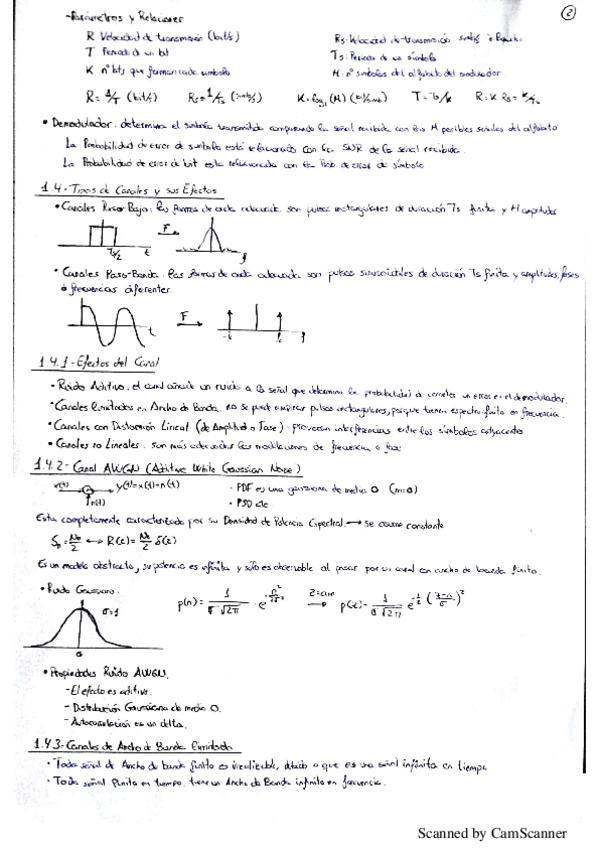 ②
-Parámetros y Relaciones
R Velocidad de transmisión (bit/s)
Rs: Velocidad de transmisión
T Periodo de un bit
Ts: Periodo de un símbolo
K nº bits que forman cada símbolo
M: nº símbolos del alfabeto del modulador.
R = 1/T (bit/s) Rs = 1/Ts (simb/s) K = log2 (M) (bit/simb) T = Ts/K R = K Rs = K/Ts
• Demodulador: determina el símbolo transmitido comparando la señal recibida con las M posibles señales del alfabeto
La Probabilidad de error de símbolo está relacionada con la SNR de la señal recibida.
La Probabilidad de error de bit está relacionada con la Prob. de error de símbolo
1.4.- Tipos de Canales y sus Efectos
• Canales Paso Bajo: las formas de onda adecuada son pulsos rectangulares de duración Ts finita y M amplitudes
F
Ts/2 t f
• Canales Paso-Banda: las formas de onda adecuada son pulsos sinusoidales de duración Ts finita y amplitudes, fases
o frecuencias diferentes.
F
t f
1.4.1-Efectos del Canal
• Ruido Aditivo: el canal añade un ruido a la señal que determina la probabilidad de cometer un error en el demodulador.
• Canales limitados en Ancho de Banda: no se puede emplear pulsos rectangulares, porque tienen espectro finito en frecuencia.
• Canales con Distorsión Lineal (de Amplitud o Fase): provocan interferencias entre los símbolos adyacentes
• Canales no Lineales: son más adecuadas las modulaciones de frecuencia o fase
1.4.2- Canal AWGN (Additive White Gaussian Noise)
x(t) y(t)=x(t)+n(t)
n(t)
• PDF es una gaussiana de media 0 (m=0)
• PSD de
Esta completamente caracterizado por su Densidad de Potencia Espectral → se asume constante
Sn = No/2 ↔ R(z) = No/2 δ(z)
Es un modelo abstracto, su potencia es infinita y sólo es observable al pasar por un canal con ancho de banda finito.
• Ruido Gaussiano:
σ=1
0
p(n) = 1/(σ√2π) · e^(-n²/2σ²) → p(z) = 1/(σ√2π) e^(-1/2 ((z-a)/σ)²)
• Propiedades Ruido AWGN.
- El efecto es aditivo.
- Distribución Gaussiana de media 0.
- Autocorrelación es un delta.
1.4.3: Canales de Ancho de Banda limitado
• Toda señal de Ancho de banda finito es irrealizable, debido a que es una señal infinita en tiempo
• Toda señal finita en tiempo, tiene un Ancho de Banda infinito en frecuencia.
Scanned by CamScanner